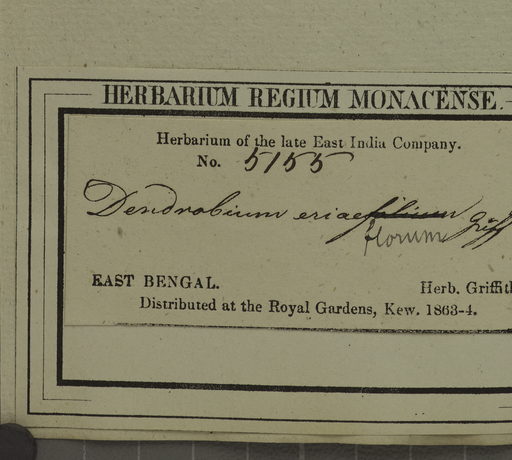 HERBARIUM REGIUM MONACENSE.
Herbarium of the late East India Company.
No. 5155
Dendrobium eriaefilium Griff
florum
EAST BENGAL. Herb. Griffith
Distributed at the Royal Gardens, Kew. 1863-4.